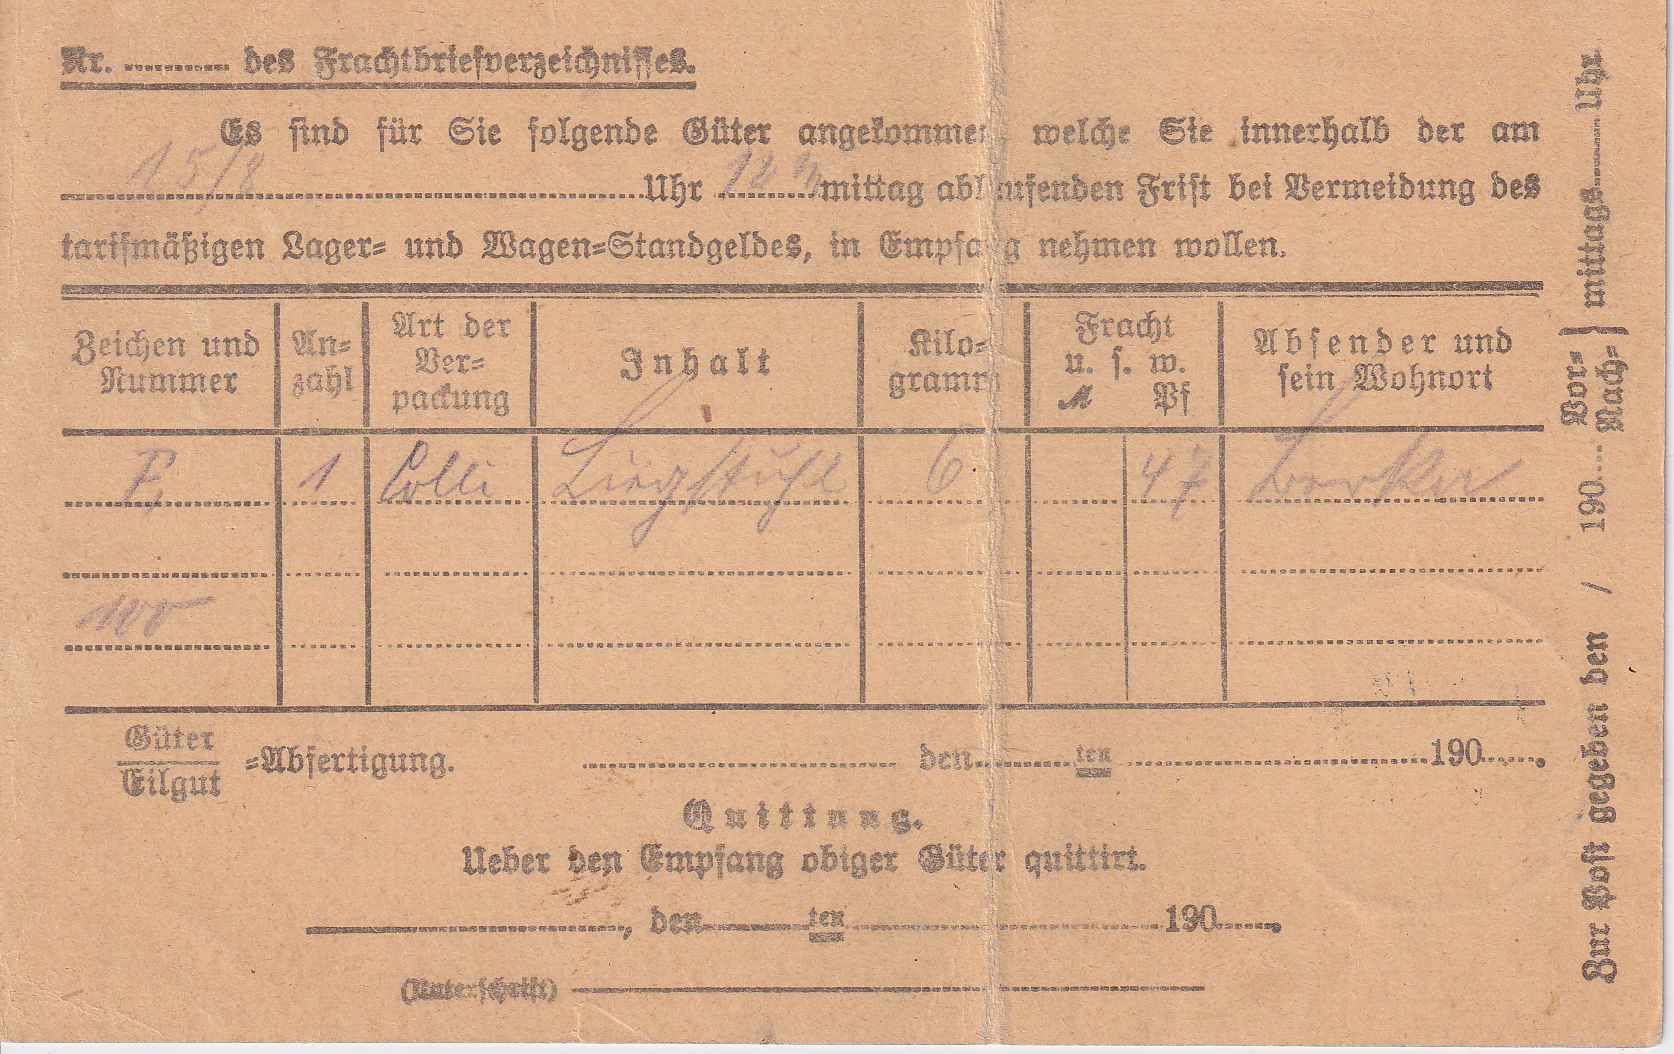 Nr. ............ des Frachtbriefverzeichnisses.
Es sind für Sie folgende Güter angekommen, welche Sie innerhalb der am
15/8 Uhr 12 mittag ablaufenden Frist bei Vermeidung des
tarifmäßigen Lager= und Wagen=Standgeldes, in Empfang nehmen wollen.
Zeichen und Nummer
An= zahl
Art der Ver= packung
Inhalt
Kilo= gramm
Fracht u. s. w. M Pf
Absender und sein Wohnort
1 Colli Liegstuhl 6 47
100
Güter
Eilgut
=Abfertigung. ............ den ............ ten ............ 190......
Quittung.
Ueber den Empfang obiger Güter quittirt.
............, den ............ ten ............ 190......
(Unterschrift)
Zur Post gegeben den / 190.... Vor= Nach= } mittags ........ Uhr